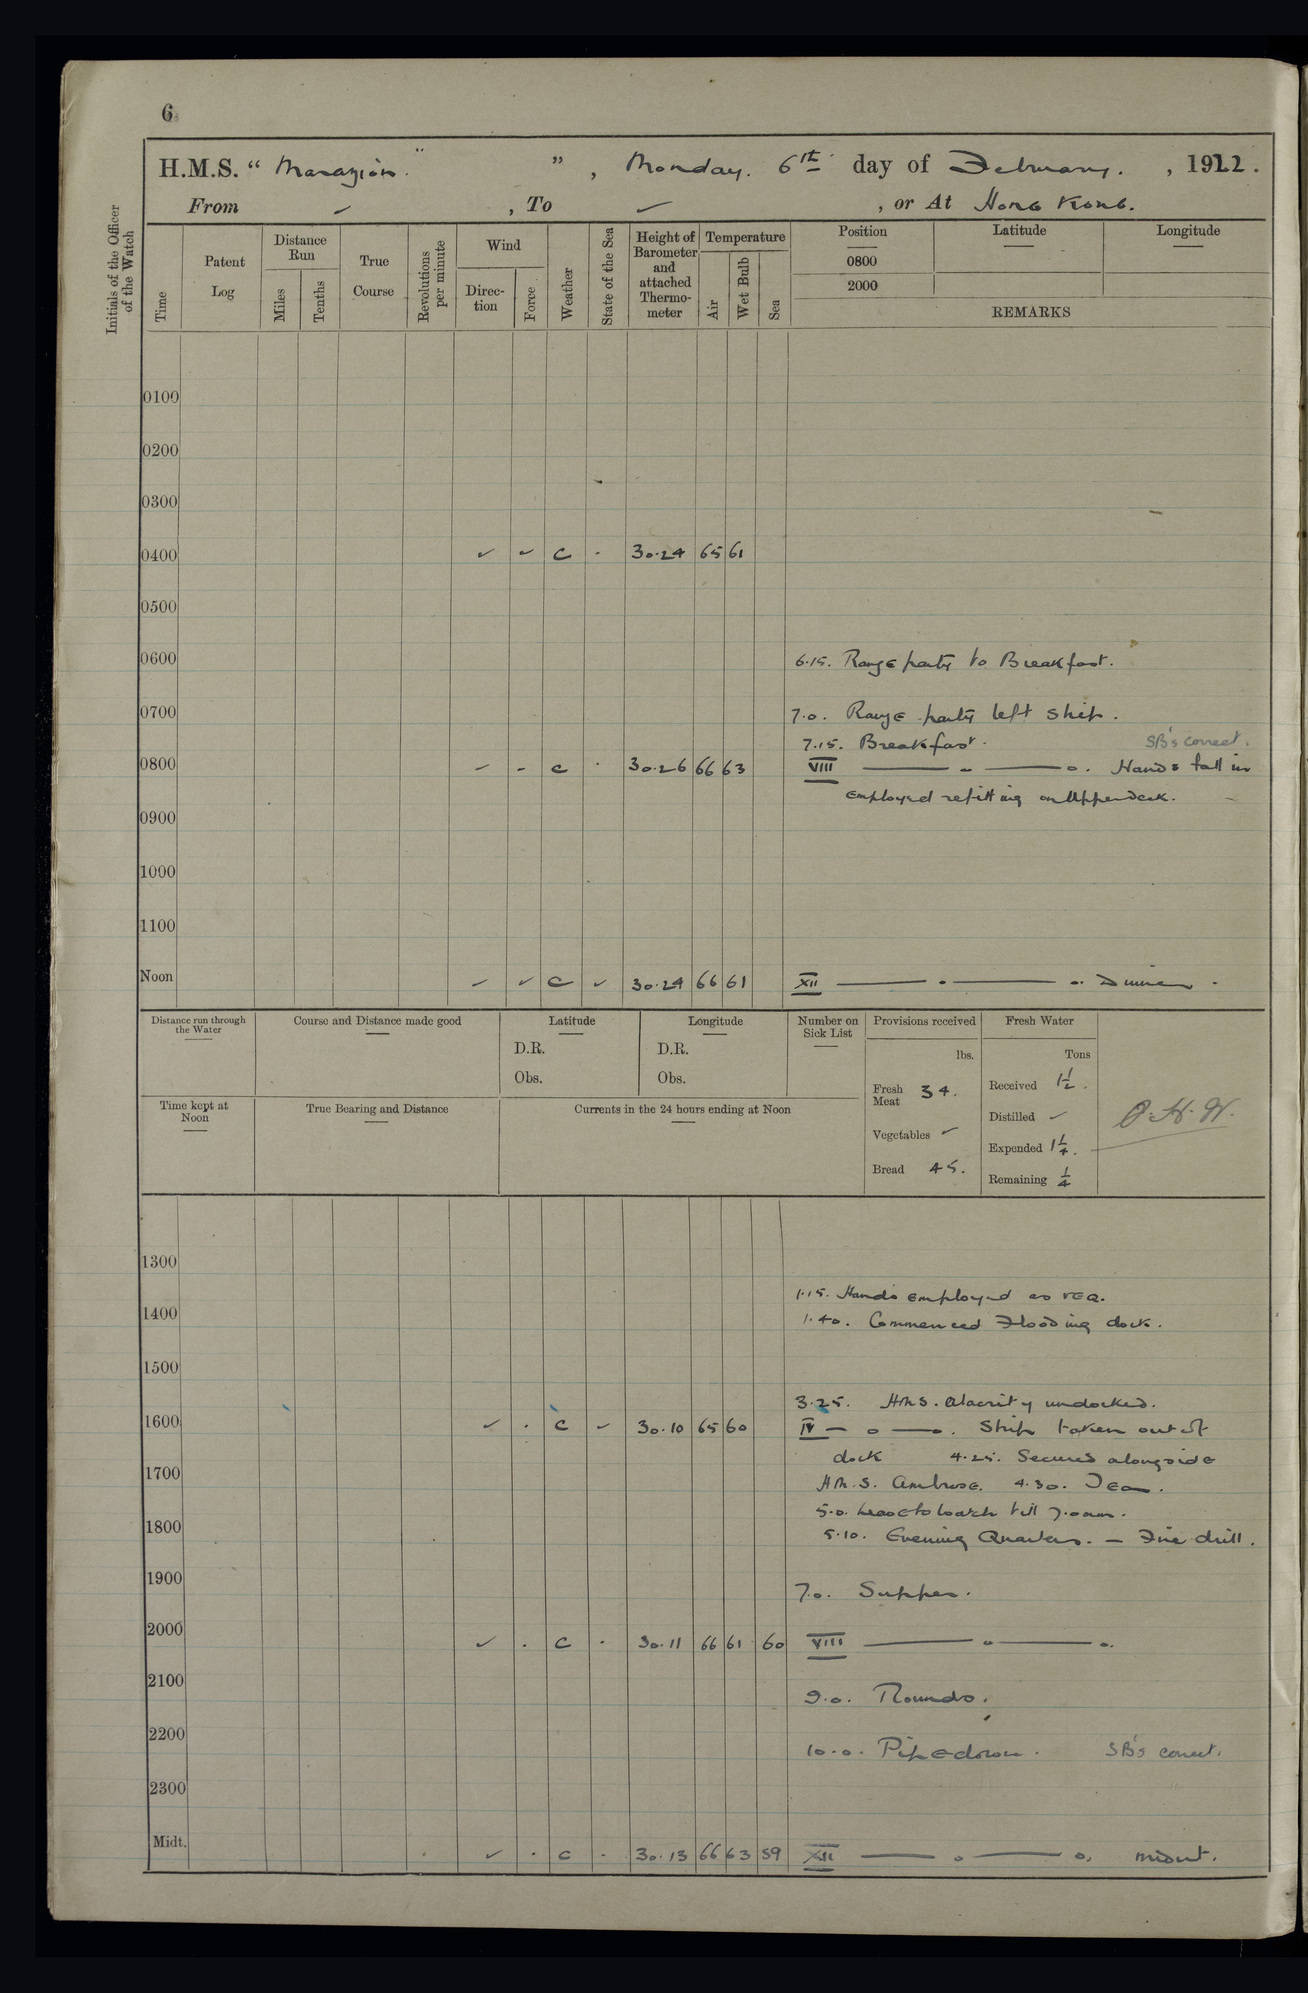 6
H.M.S. “ Marazion. ” , Monday. 6th day of February. , 1922.
From ✓ , To ✓ , or At Hong Kong.
Initials of the Officer of the Watch
Time
Patent Log
Distance Run
Miles
Tenths
True Course
Revolutions per minute
Wind
Direction
Force
Weather
State of the Sea
Height of Barometer and attached Thermometer
Temperature
Air
Wet Bulb
Sea
Position Latitude Longitude
0800
2000
REMARKS
0100
0200
0300
0400 ✓ ✓ c - 30.24 65 61
0500
0600 6.15. Range party to Breakfast.
0700 7.0. Range party left ship.
7.15. Breakfast. SB's correct.
0800 ✓ - c . 30.26 66 63 VIII — o — o. Hands fall in
employed refitting on Upperdeck.
0900
1000
1100
Noon ✓ ✓ c ✓ 30.24 66 61 XII — o — o. Dinner.
Distance run through the Water
Course and Distance made good
Latitude
D.R.
Obs.
Longitude
D.R.
Obs.
Number on Sick List
Provisions received
lbs.
Fresh Meat 34.
Vegetables ✓
Bread 45.
Fresh Water
Tons
Received 1½.
Distilled ✓
Expended 1¼.
Remaining ¼
Time kept at Noon
True Bearing and Distance
Currents in the 24 hours ending at Noon
1300
1.15. Hands employed as req.
1400 1.40. Commenced Flooding dock.
1500
3.25. HMS. Alacrity undocked.
1600 ✓ . c ✓ 30.10 65 60 IV — o — o. Ship taken out of
dock 4.25. Secured alongside
1700 H.M.S. Ambrose. 4.30. Tea.
5.0. Leave to watch till 7.0am.
1800 5.10. Evening Quarters. — Fire drill.
1900 7.0. Supper.
2000 ✓ . c . 30.11 66 61 60 VIII — o — o.
2100 9.0. Rounds.
2200 10.0. Pipe down. SB's correct.
2300
Midt. ✓ . c . 30.13 66 63 59 XII — o — o. midnt.